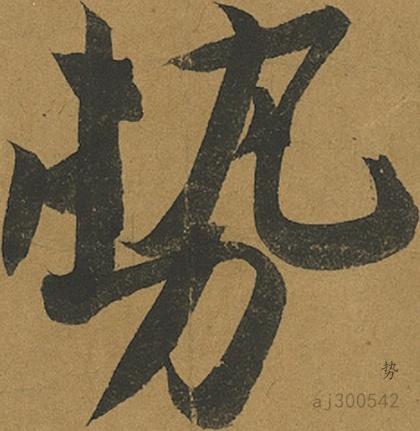 勢
势
aj300542